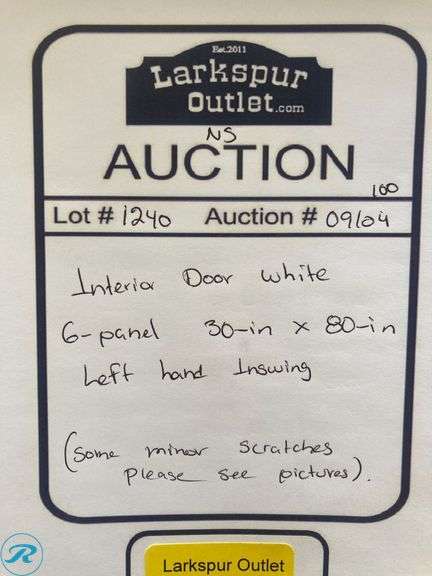 Est.2011
Larkspur
Outlet.com
NS
AUCTION
100
Lot # 1240 Auction # 09/04
Interior Door white
6-panel 30-in x 80-in
Left hand Inswing
(Some minor scratches
please see pictures).
R
Larkspur Outlet